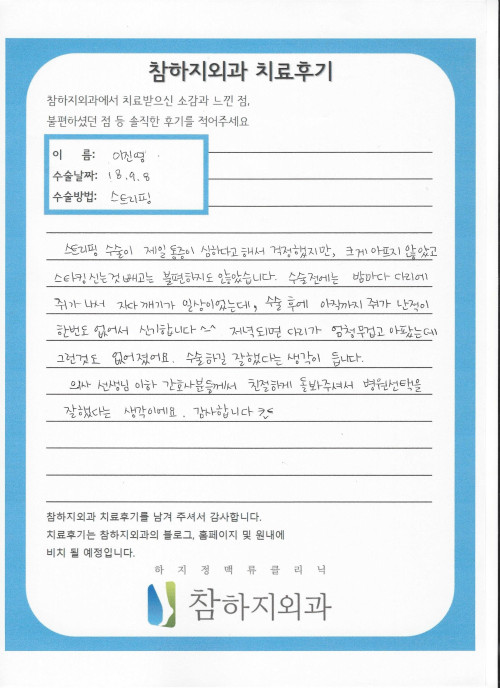 참하지외과 치료후기
참하지외과에서 치료받으신 소감과 느낀 점,
불편하셨던 점 등 솔직한 후기를 적어주세요
이 름: 이진영
수술날짜: 18.9.8
수술방법: 스트리핑
스트리핑 수술이 제일 통증이 심하다고 해서 걱정했지만, 크게 아프지 않았고
스타킹 신는것 빼고는 불편하지도 않았습니다. 수술전에는 밤마다 다리에
쥐가 나서 자다 깨기가 일상이었는데, 수술 후에 아직까지 쥐가 난적이
한번도 없어서 신기합니다 ^^ 저녁되면 다리가 엄청무겁고 아팠는데
그런것도 없어졌어요. 수술하길 잘했다는 생각이 듭니다.
의사 선생님 이하 간호사분들께서 친절하게 돌봐주셔서 병원선택을
잘했다는 생각이에요. 감사합니다
참하지외과 치료후기를 남겨 주셔서 감사합니다.
치료후기는 참하지외과의 블로그, 홈페이지 및 원내에
비치 될 예정입니다.
하지정맥류클리닉
참하지외과